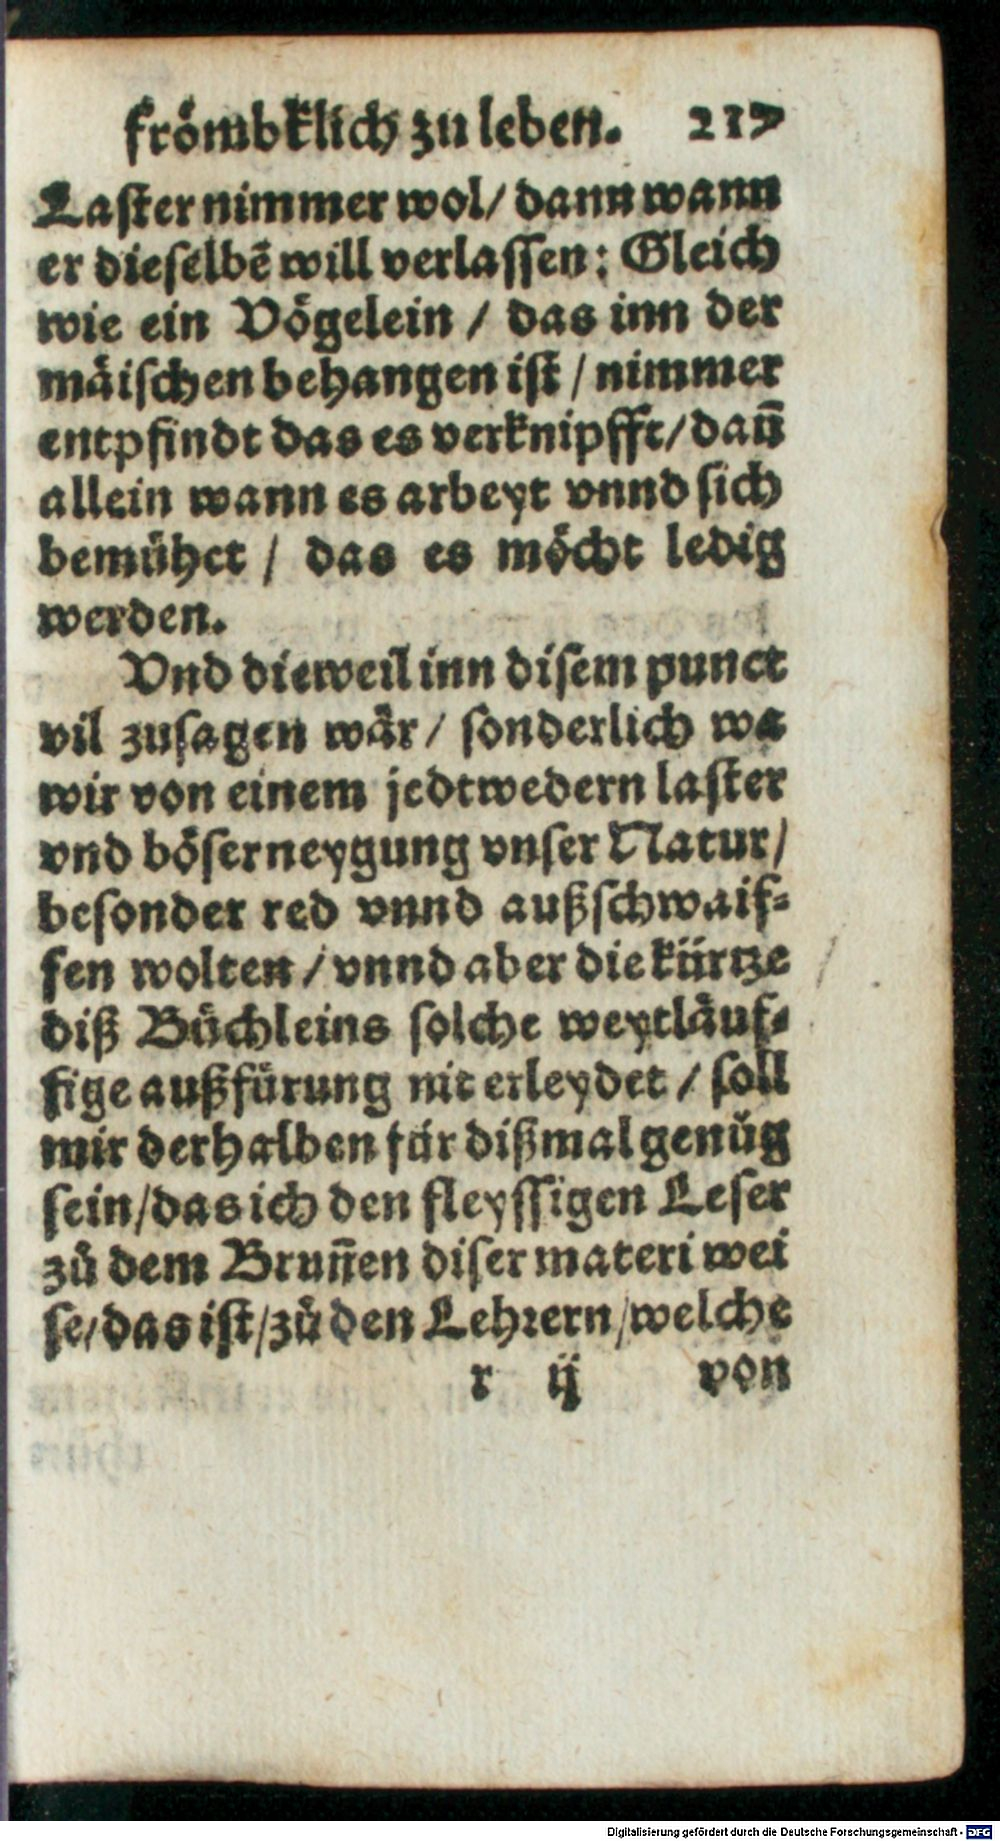 frömbklich zu leben. 217
Laster nimmer wol / dann wann
er dieselbē will verlassen: Gleich
wie ein Vögelein / das inn der
mäischen behangen ist / nimmer
entpfindt das es verknipfft / dañ
allein wann es arbeyt vnnd sich
bemühet / das es möcht ledig
werden.
Vnd dieweil inn disem punct
vil zusagen wär / sonderlich wa
wir von einem jedtwedern laster
vnd böser neygung vnser Natur /
besonder red vnnd außschwaif-
fen wolten / vnnd aber die kürtze
diß Büchleins solche weytläuf-
fige außfürung nit erleydet / soll
mir derhalben für dißmal genůg
sein / das ich den fleyssigen Leser
zů dem Bruñen diser materi wei
se / das ist / zů den Lehrern / welche
r ij von
Digitalisierung gefördert durch die Deutsche Forschungsgemeinschaft - DFG